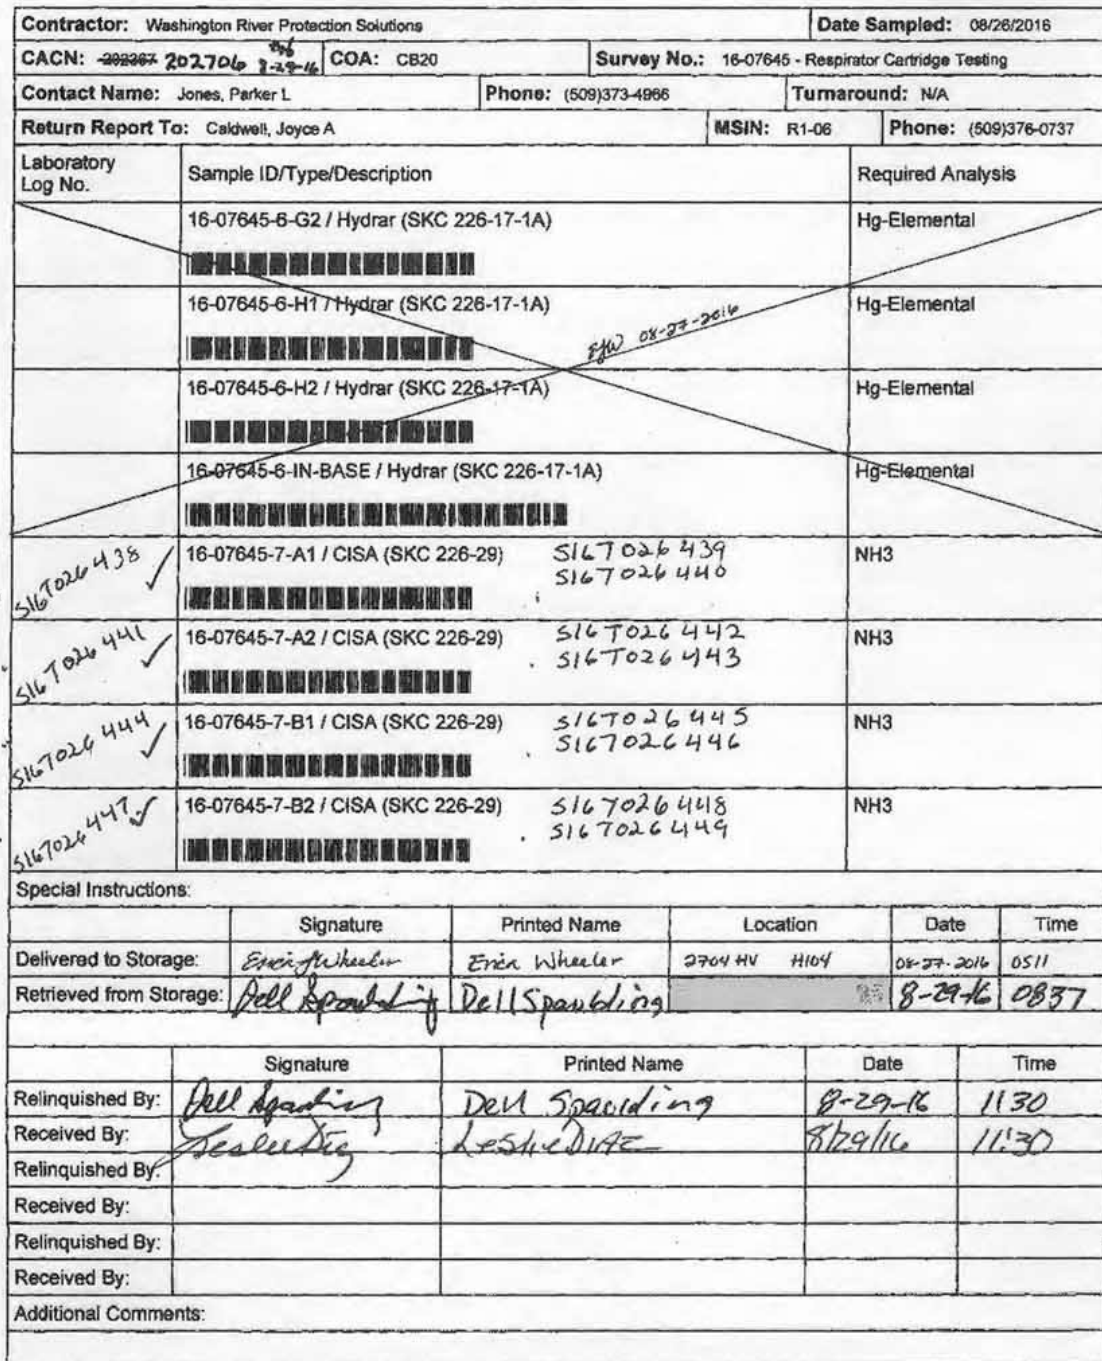 Contractor: Washington River Protection Solutions Date Sampled: 08/26/2016
CACN: 202367 202706 8-29-16 COA: CB20 Survey No.: 16-07645 - Respirator Cartridge Testing
Contact Name: Jones, Parker L Phone: (509)373-4966 Turnaround: N/A
Return Report To: Caldwell, Joyce A MSIN: R1-06 Phone: (509)376-0737
Laboratory Log No. Sample ID/Type/Description Required Analysis
16-07645-6-G2 / Hydrar (SKC 226-17-1A) Hg-Elemental
16-07645-6-H1 / Hydrar (SKC 226-17-1A) Hg-Elemental
EJW 08-27-2016
16-07645-6-H2 / Hydrar (SKC 226-17-1A) Hg-Elemental
16-07645-6-IN-BASE / Hydrar (SKC 226-17-1A) Hg-Elemental
S16T026438 ✓ 16-07645-7-A1 / CISA (SKC 226-29) S16T026439 NH3
S16T026440
S16T026441 ✓ 16-07645-7-A2 / CISA (SKC 226-29) S16T026442 NH3
S16T026443
S16T026444 ✓ 16-07645-7-B1 / CISA (SKC 226-29) S16T026445 NH3
S16T026446
S16T026447 ✓ 16-07645-7-B2 / CISA (SKC 226-29) S16T026448 NH3
S16T026449
Special Instructions:
Signature Printed Name Location Date Time
Delivered to Storage: Erica J Wheeler Erica Wheeler 2704 HV H104 08-27-2016 0511
Retrieved from Storage: Dell Spaulding Dell Spaulding 8-29-16 0837
Signature Printed Name Date Time
Relinquished By: Dell Spaulding Dell Spaulding 8-29-16 1130
Received By: Leslie Diaz Leslie DIAZ 8/29/16 11:30
Relinquished By:
Received By:
Relinquished By:
Received By:
Additional Comments: